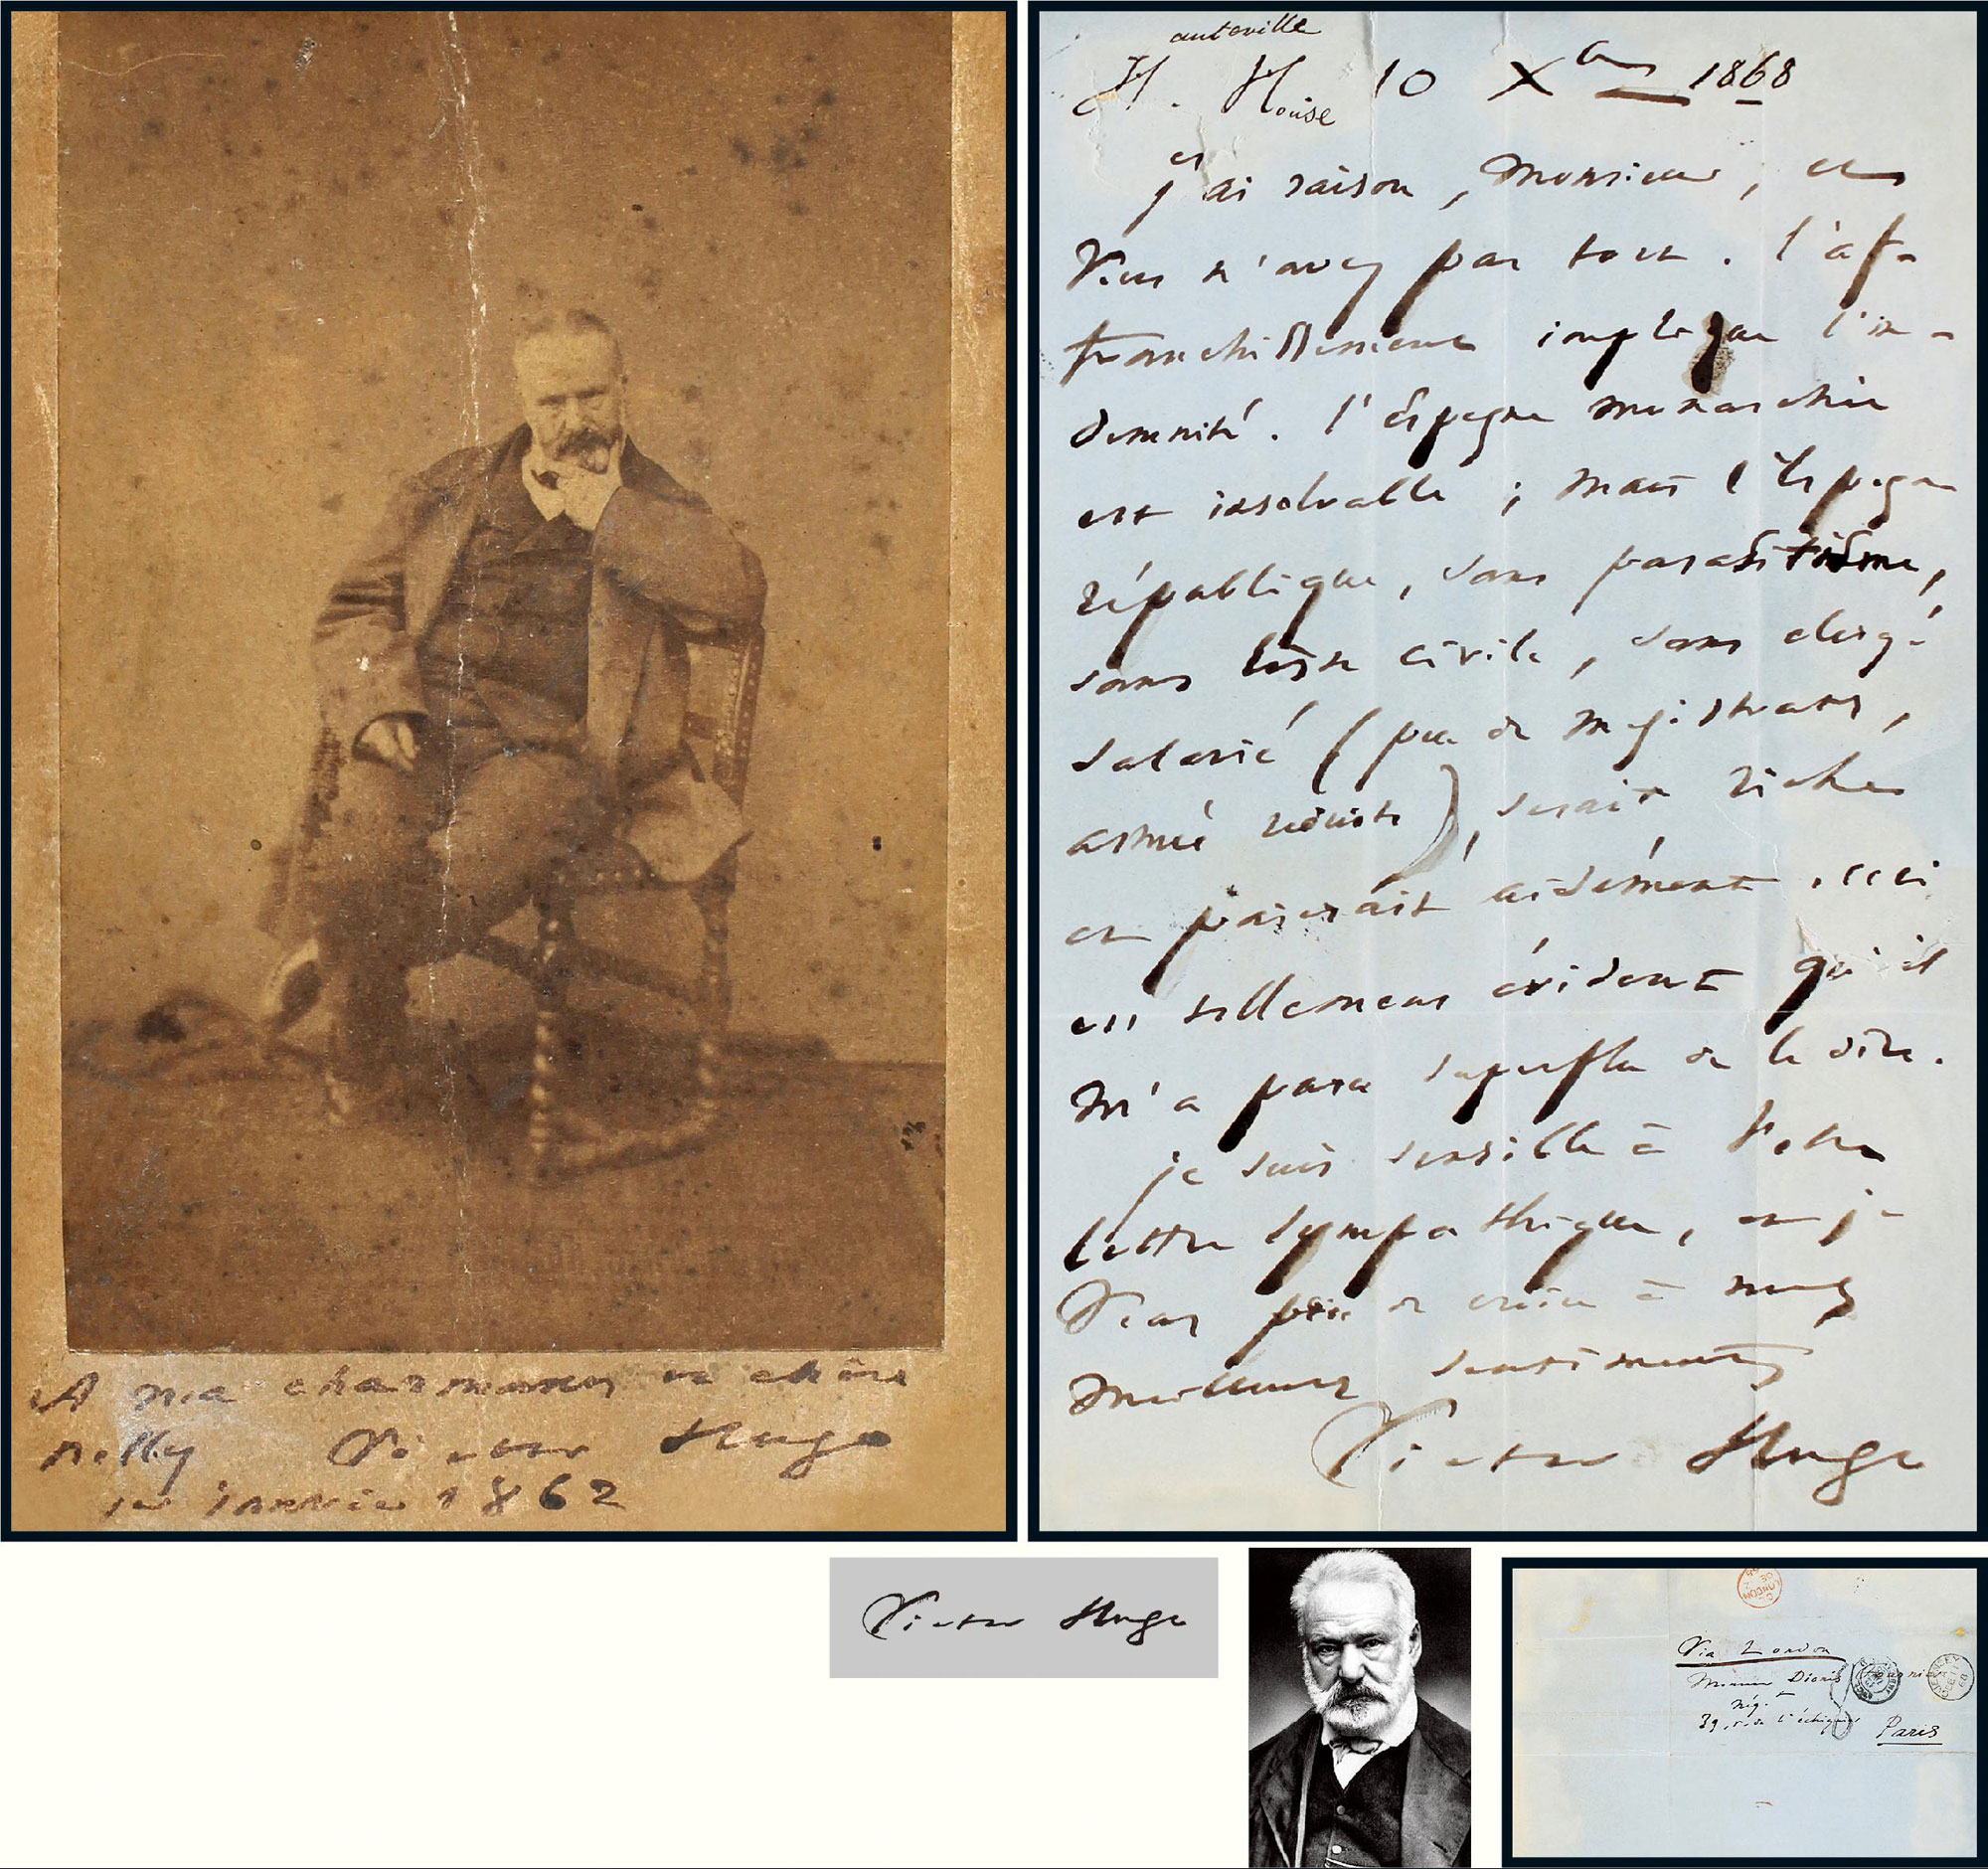 A ma charmante et chère
nelly Victor Hugo
1er janvier 1862
auteville
H. H. 10 Xbre 1868
ouse
j'ai raison, Monsieur, et
Vous n'avez pas tort. l'af-
franchissement implique l'in-
demnité. l'Espagne monarchie
est insolvable ; mais l'Espagne
république, sans parasitisme,
sans liste civile, sans clergé
salarié (peu de magistrats,
armée réduite), serait riche
et paierait aisément. ceci
est tellement évident qu'il
m'a paru superflu de le dire.
je suis sensible à votre
lettre sympathique, et je
Vous prie de croire à mes
meilleurs sentiments
Victor Hugo
Victor Hugo
LONDON
Via London
Monsieur Dionis
Nég.t
39, r. de l'échiquier
Paris
GUERNSEY